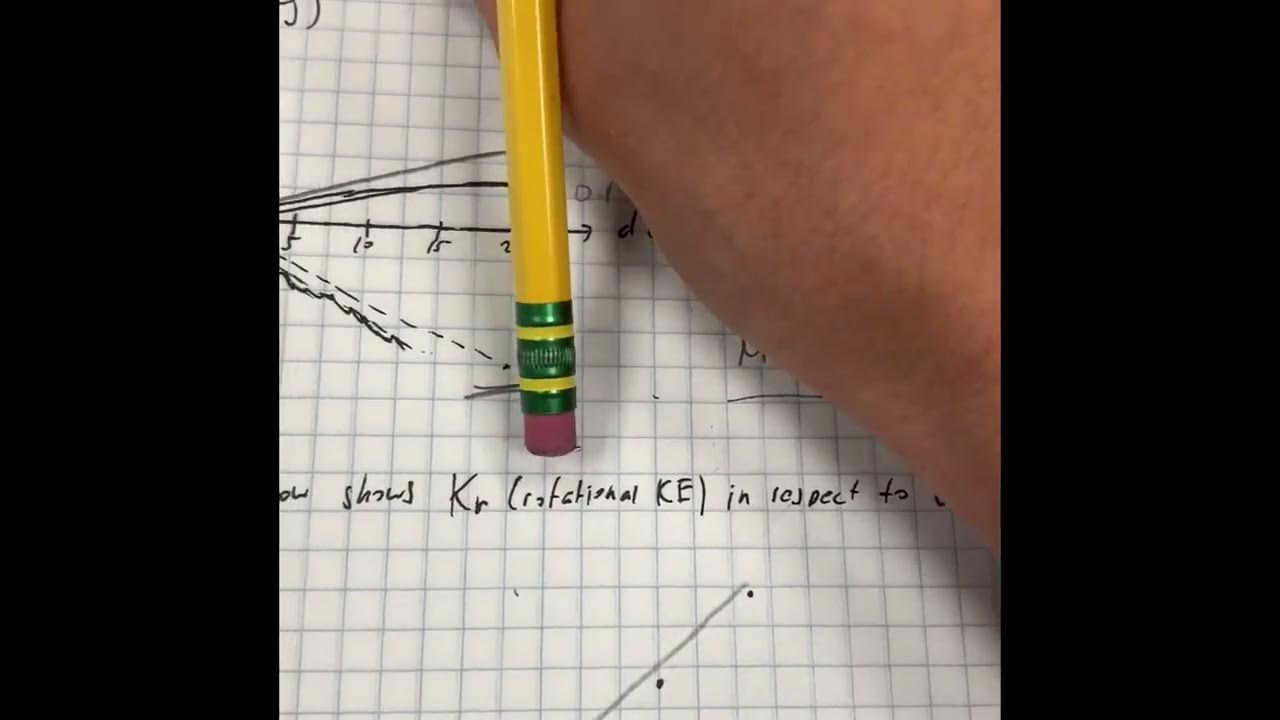 y)
0.1
d
5 10 15 2
M
ow shows Kr (rotational KE) in respect to